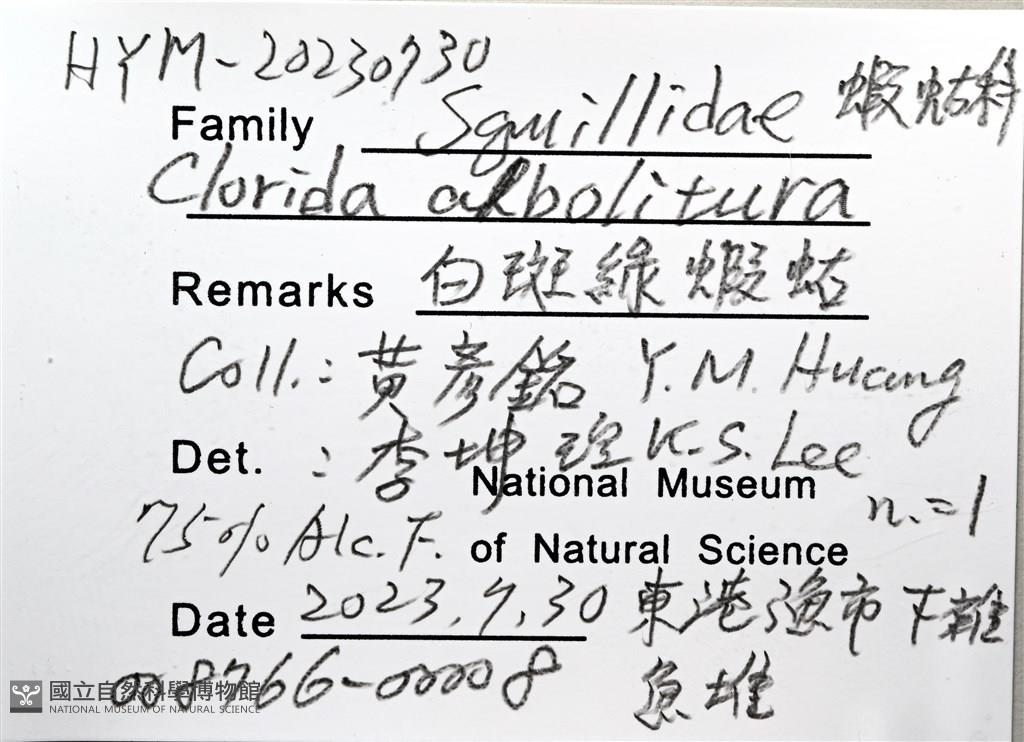 HYM-20230730
Family Squillidae 蝦蛄科
Clorida albolitura
Remarks 白斑綠蝦蛄
Coll.: 黃彥銘 Y.M. Huang
Det. : 李坤瑄 K.S. Lee
National Museum n.=1
75% Alc. F. of Natural Science
Date 2023.7.30 東港漁市下雜
008766-00008 魚堆
國立自然科學博物館
NATIONAL MUSEUM OF NATURAL SCIENCE